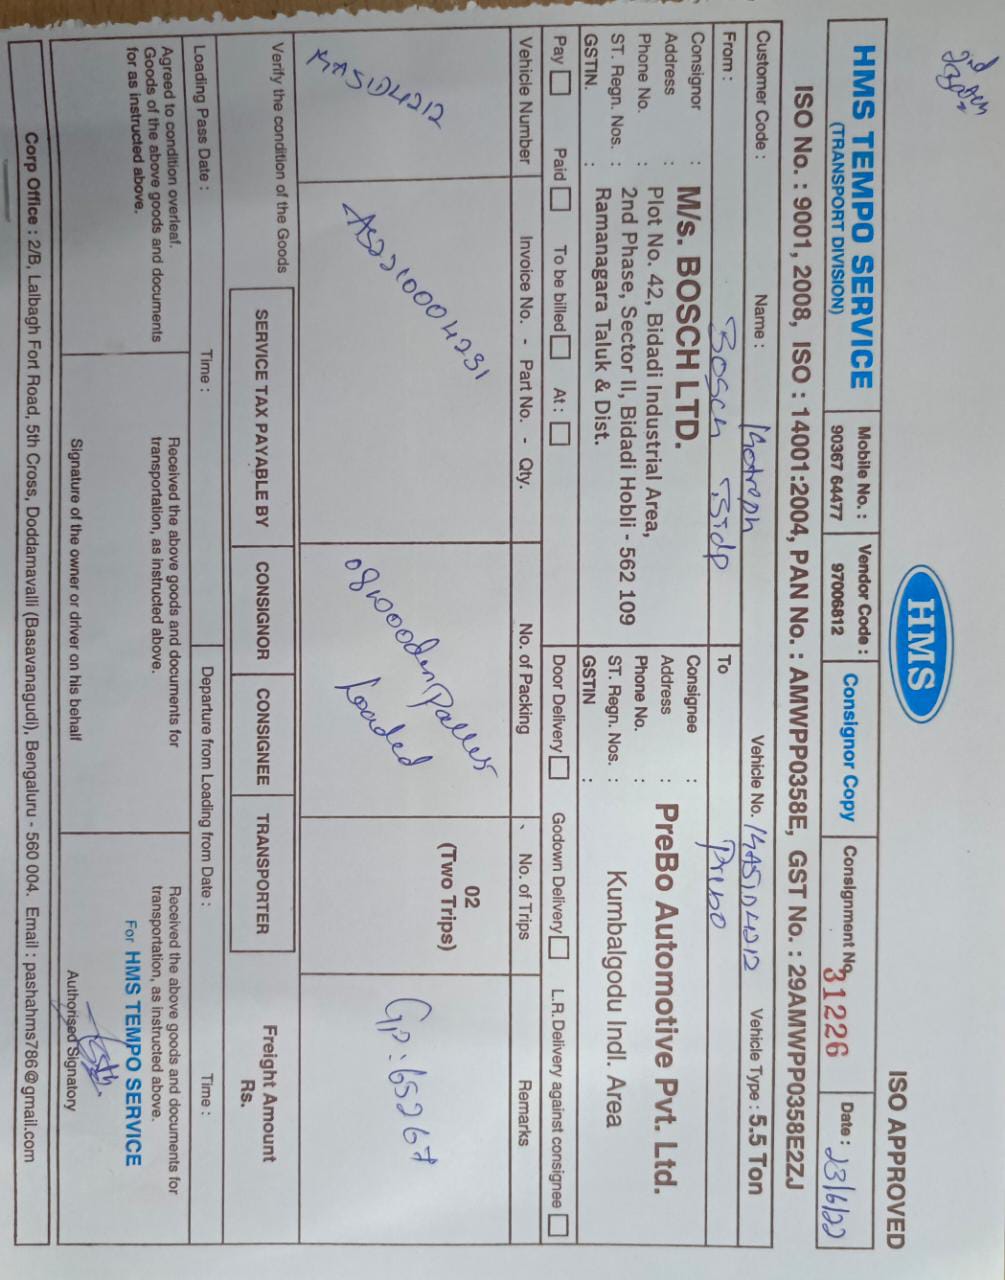 2nd
Batch
HMS
ISO APPROVED
HMS TEMPO SERVICE
(TRANSPORT DIVISION)
Mobile No. :
90367 64477
Vendor Code :
97006812
Consignor Copy
Consignment No. 31226
Date : 23/6/22
ISO No. : 9001, 2008, ISO : 14001:2004, PAN No. : AMWPP0358E, GST No. : 29AMWPP0358E2ZJ
Customer Code : Name : Vehicle No. KA51D4212 Vehicle Type : 5.5 Ton
From : Bosch Bidp
To Prebo
Consignor :
Address :
Phone No. :
ST. Regn. Nos. :
GSTIN. :
M/s. BOSCH LTD.
Plot No. 42, Bidadi Industrial Area,
2nd Phase, Sector II, Bidadi Hobli - 562 109
Ramanagara Taluk & Dist.
Consignee :
Address :
Phone No. :
ST. Regn. Nos. :
GSTIN :
PreBo Automotive Pvt. Ltd.
Kumbalgodu Indl. Area
Pay Paid To be billed At :
Door Delivery Godown Delivery L.R. Delivery against consignee
Vehicle Number Invoice No. - Part No. - Qty. No. of Packing No. of Trips Remarks
KA51D4212
AS2210004231
08 wooden Pallet
Loaded
02
(Two Trips)
GP:65267
Verify the condition of the Goods
SERVICE TAX PAYABLE BY CONSIGNOR CONSIGNEE TRANSPORTER
Freight Amount
Rs.
Loading Pass Date : Time :
Departure from Loading from Date : Time :
Agreed to condition overleaf.
Goods of the above goods and documents
for as instructed above.
Received the above goods and documents for
transportation, as instructed above.
Signature of the owner or driver on his behalf
Received the above goods and documents for
transportation, as instructed above.
For HMS TEMPO SERVICE
Authorised Signatory
Corp Office : 2/B, Lalbagh Fort Road, 5th Cross, Doddamavalli (Basavanagudi), Bengaluru - 560 004. Email : pashahms786@gmail.com